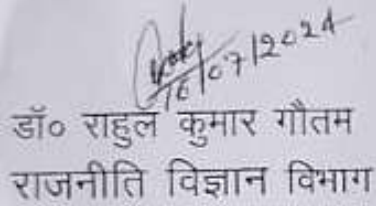 16/07/2024
डॉ० राहुल कुमार गौतम
राजनीति विज्ञान विभाग